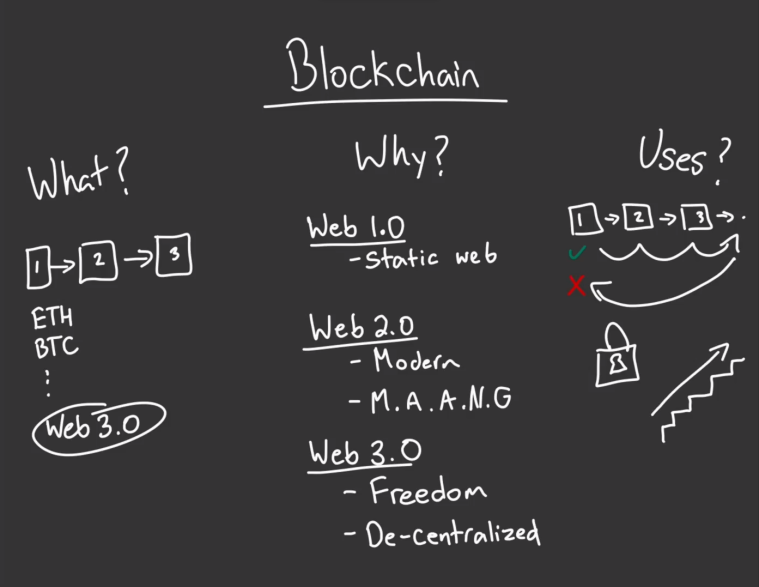 Blockchain
What?
1 → 2 → 3
ETH
BTC
⋮
Web 3.0
Why?
Web 1.0
- Static web
Web 2.0
- Modern
- M.A.A.N.G
Web 3.0
- Freedom
- De-centralized
Uses?
1 → 2 → 3 → .
✓
X
B